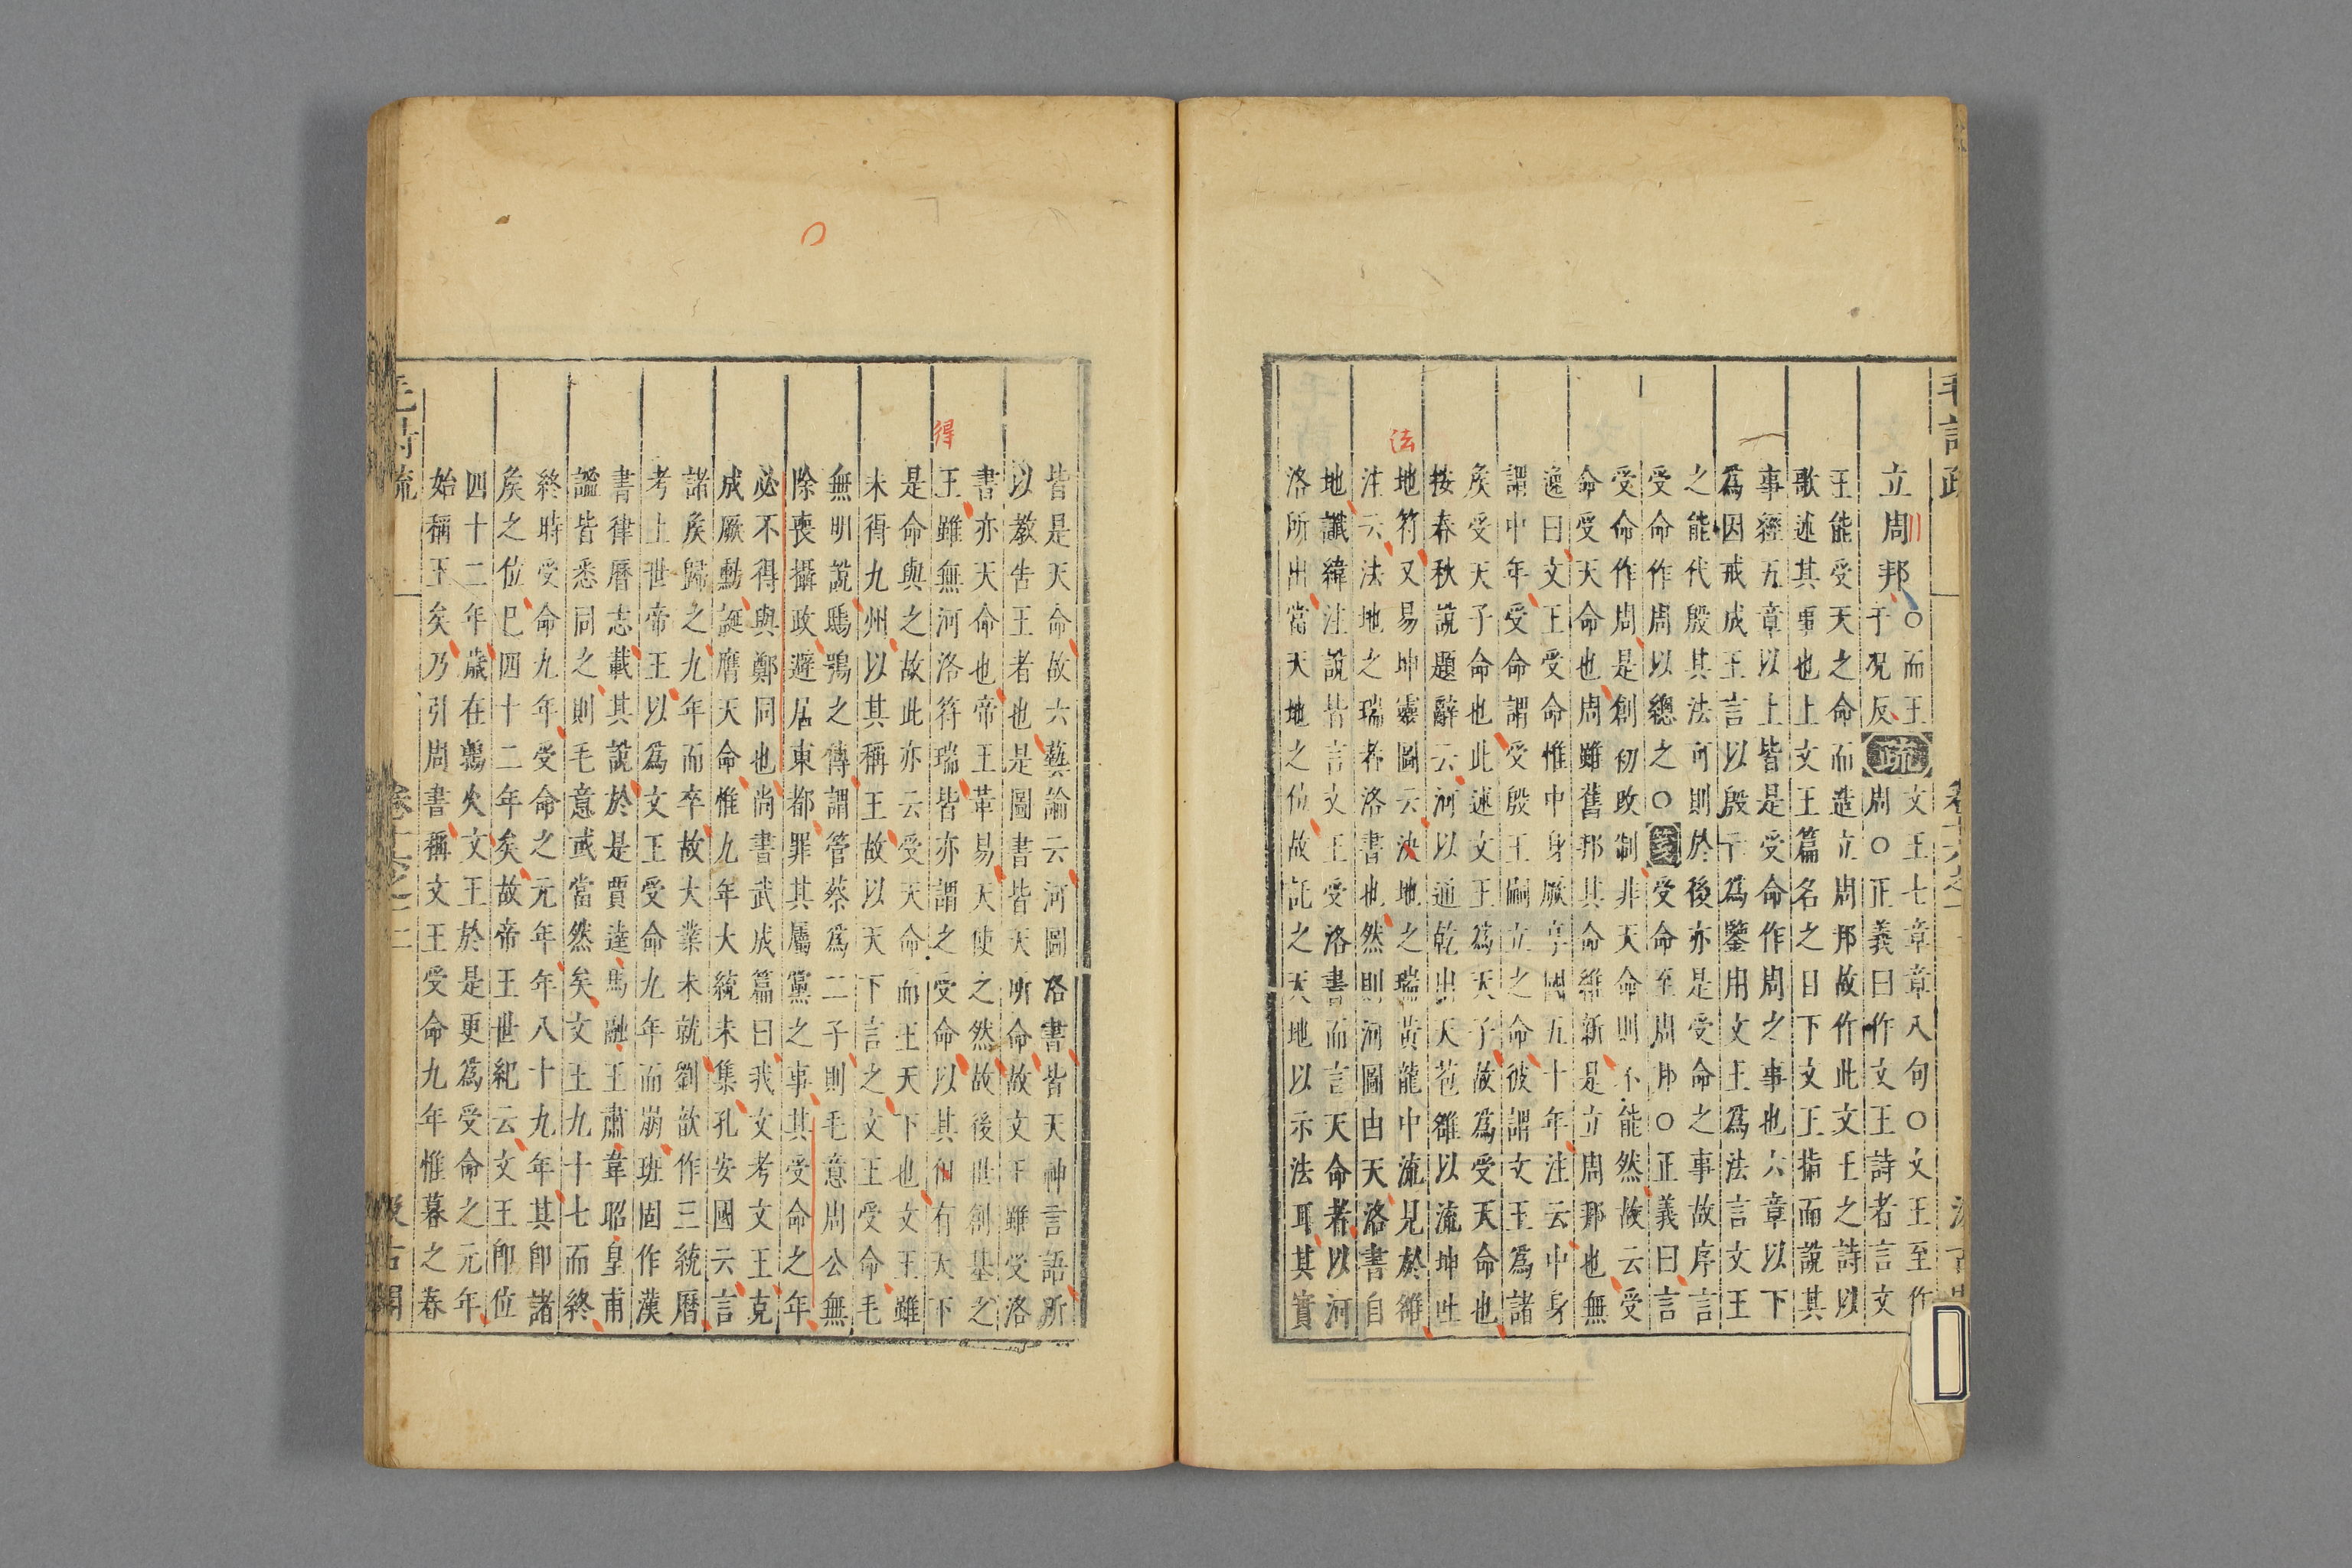 毛詩疏 卷十六之一
立周邦○而王于況反疏文王七章章八句○文王至作
周○正義曰作文王詩者言文
王能受天之命而造立周邦故作此文王之詩以
歌述其事也上文王篇名之日下文王指而說其
事經五章以上皆是受命作周之事也六章以下
爲因戒成王言以殷亡爲鑒用文王爲法言文王
之能代殷其法可則於後亦是受命之事故序言
受命作周以總之○箋受命至周邦○正義曰言
受命作周是創初改制非天命則不能然故云受
命受天命也周雖舊邦其命維新是立周邦也無
逸曰文王受命惟中身厥享國五十年注云中身
謂中年受命謂受殷王嗣立之命彼謂文王爲諸
矦受天子命也此述文王爲天子故爲受天命也
按春秋說題辭云河以通乾出天苞雒以流坤吐
法
地符又易坤靈圖云決地之瑞黃龍中流見於雒
注云法地之瑞者洛書也然則河圖由天洛書自
地讖緯注說皆言文王受洛書而言天命者以河
洛所出當天地之位故託之天地以示法耳其實
皆是天命故六藝論云河圖洛書皆天神言語所
以教告王者也是圖書皆天所命故文王雖受洛
書亦天命也帝王革易天使之然故後世創基之
得
王雖無河洛符瑞皆亦謂之受命以其但有天下
是命與之故此亦云受天命而王天下也文王雖
未得九州以其稱王故以天下言之文王受命毛
無明說鴟鴞之傳謂管蔡爲二子則毛意周公無
除喪攝政避居東都罪其屬黨之事其受命之年
必不得與鄭同也尚書武成篇曰我文考文王克
成厥勳誕膺天命惟九年大統未集孔安國云言
諸矦歸之九年而卒故大業未就劉歆作三統曆
考上世帝王以爲文王受命九年而崩班固作漢
書律曆志載其說於是賈逵馬融王肅韋昭皇甫
謐皆悉同之則毛意或當然矣文王九十七而終
終時受命九年受命之元年年八十九年其即諸
矦之位已四十二年矣故帝王世紀云文王即位
四十二年歲在鶉火文王於是更爲受命之元年
始稱王矣乃引周書稱文王受命九年惟暮之春